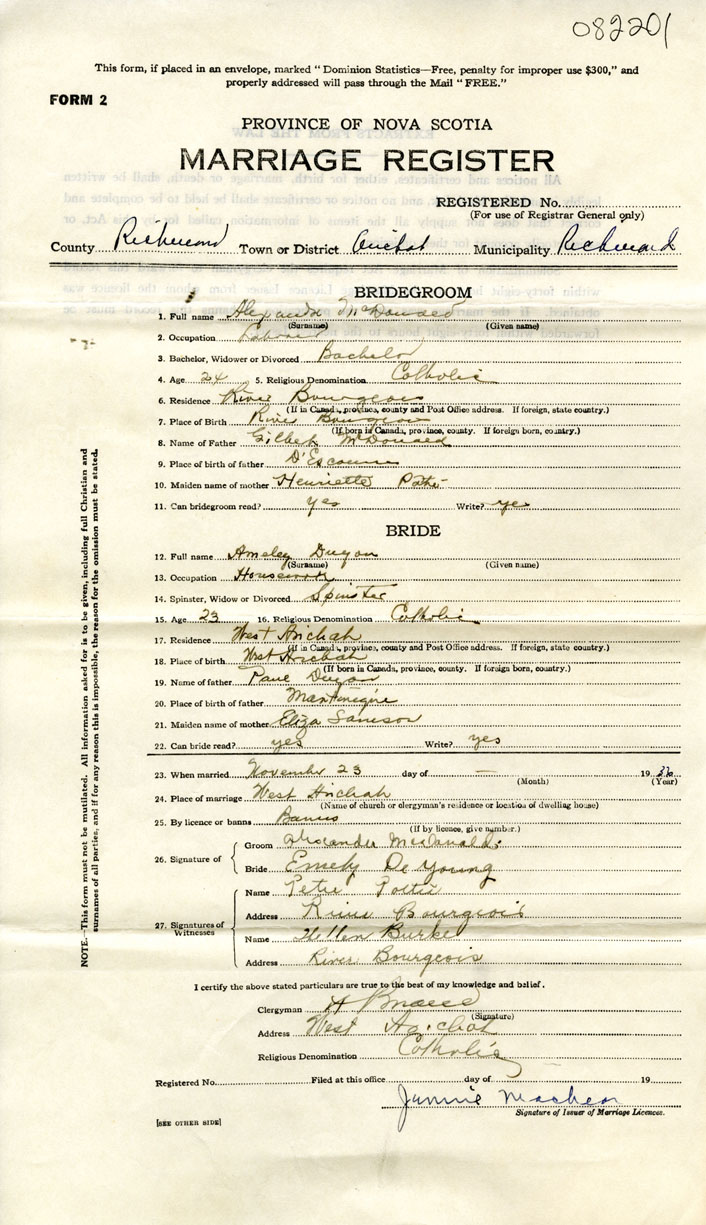 082201
This form, if placed in an envelope, marked "Dominion Statistics—Free, penalty for improper use $300," and
properly addressed will pass through the Mail "FREE."
FORM 2
PROVINCE OF NOVA SCOTIA
MARRIAGE REGISTER
REGISTERED No.
(For use of Registrar General only)
County Richmond Town or District Arichat Municipality Richmond
BRIDEGROOM
1. Full name Alexander McDonald
(Surname) (Given name)
2. Occupation Labourer
3. Bachelor, Widower or Divorced Bachelor
4. Age 24 5. Religious Denomination Catholic
6. Residence River Bourgeois
(If in Canada, province, county and Post Office address. If foreign, state country.)
7. Place of Birth River Bourgeois
(If born in Canada, province, county. If foreign born, country.)
8. Name of Father Gilbert McDonald
9. Place of birth of father D'Escousse
10. Maiden name of mother Henriette
11. Can bridegroom read? yes Write? yes
BRIDE
12. Full name Amsley Duyon
(Surname) (Given name)
13. Occupation Housework
14. Spinster, Widow or Divorced Spinster
15. Age 23 16. Religious Denomination Catholic
17. Residence West Arichat
(If in Canada, province, county and Post Office address. If foreign, state country.)
18. Place of birth West Arichat
(If born in Canada, province, county. If foreign born, country.)
19. Name of father Paul Duyon
20. Place of birth of father Martinique
21. Maiden name of mother Eliza Samson
22. Can bride read? yes Write? yes
23. When married November 23 day of — 19 36
(Month) (Year)
24. Place of marriage West Arichat
(Name of church or clergyman's residence or location of dwelling house)
25. By licence or banns Banns
(If by licence, give number.)
26. Signature of { Groom Alexander McDonald
Bride Emely De Young
27. Signatures of Witnesses { Name Peter Pottie
Address River Bourgeois
Name Hellen Burke
Address River Bourgeois
I certify the above stated particulars are true to the best of my knowledge and belief.
Clergyman
(Signature)
Address West Arichat
Religious Denomination Catholic
Registered No. Filed at this office day of 19
Jennie
Signature of Issuer of Marriage Licences.
[SEE OTHER SIDE]
NOTE.—This form must not be mutilated. All information asked for is to be given, including full Christian and
surnames of all parties, and if for any reason this is impossible, the reason for the omission must be stated.